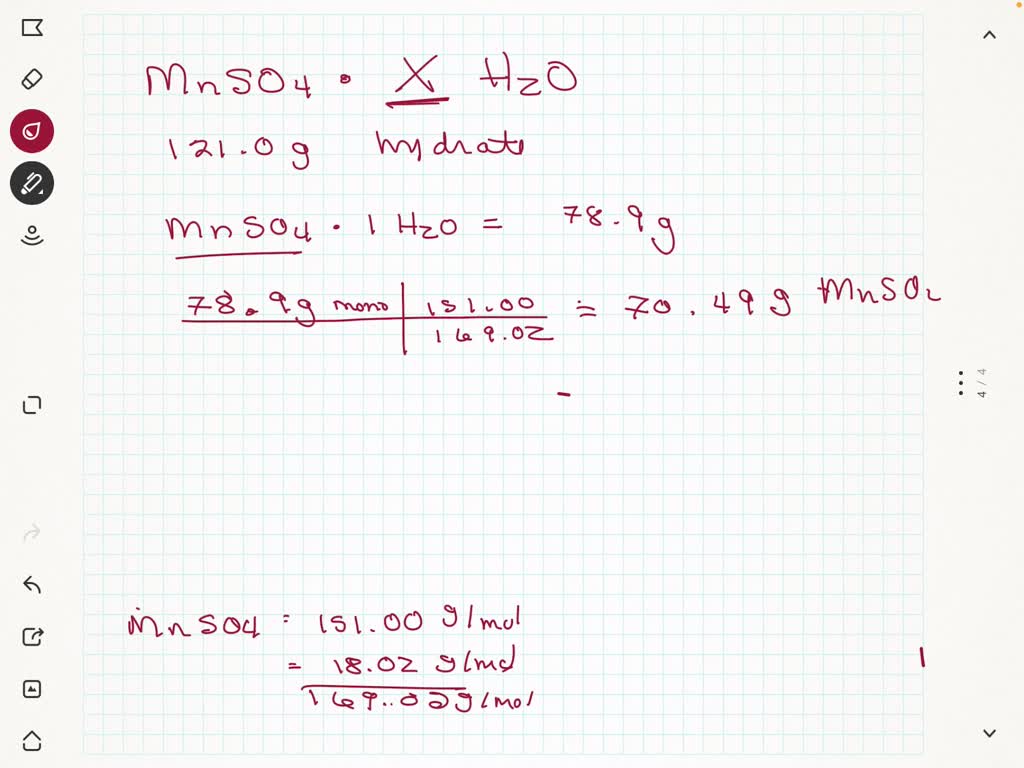 MnSO4 · X H2O
121.0 g hydrate
MnSO4 · 1 H2O = 78.9 g
78.9g mono | 151.00 = 70.49 g MnSO2
169.02
-
MnSO4 = 151.00 g/mol
= 18.02 g/mol
169.02 g/mol
1
4 / 4